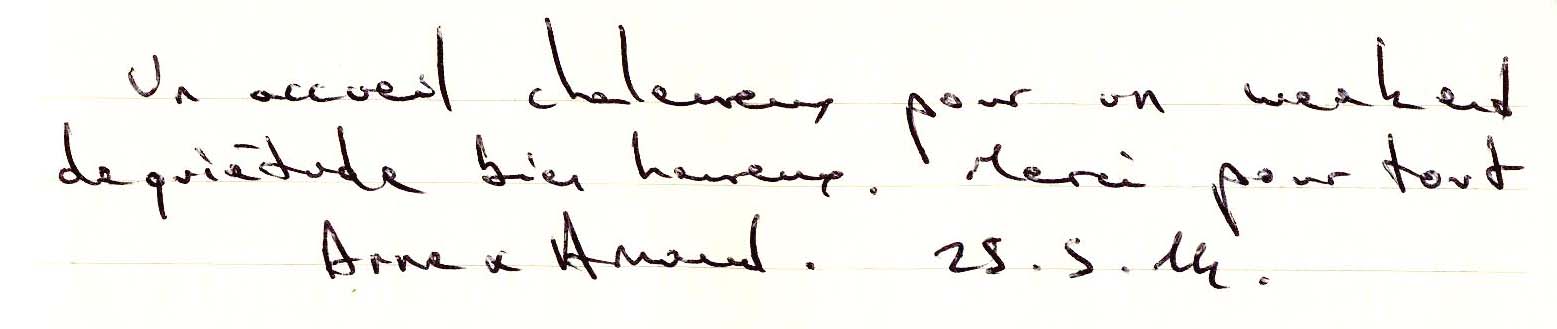 Un accueil chaleureux pour un weekend
de quiétude bien heureux. Merci pour tout
Anne & Arnaud. 25.5.14.